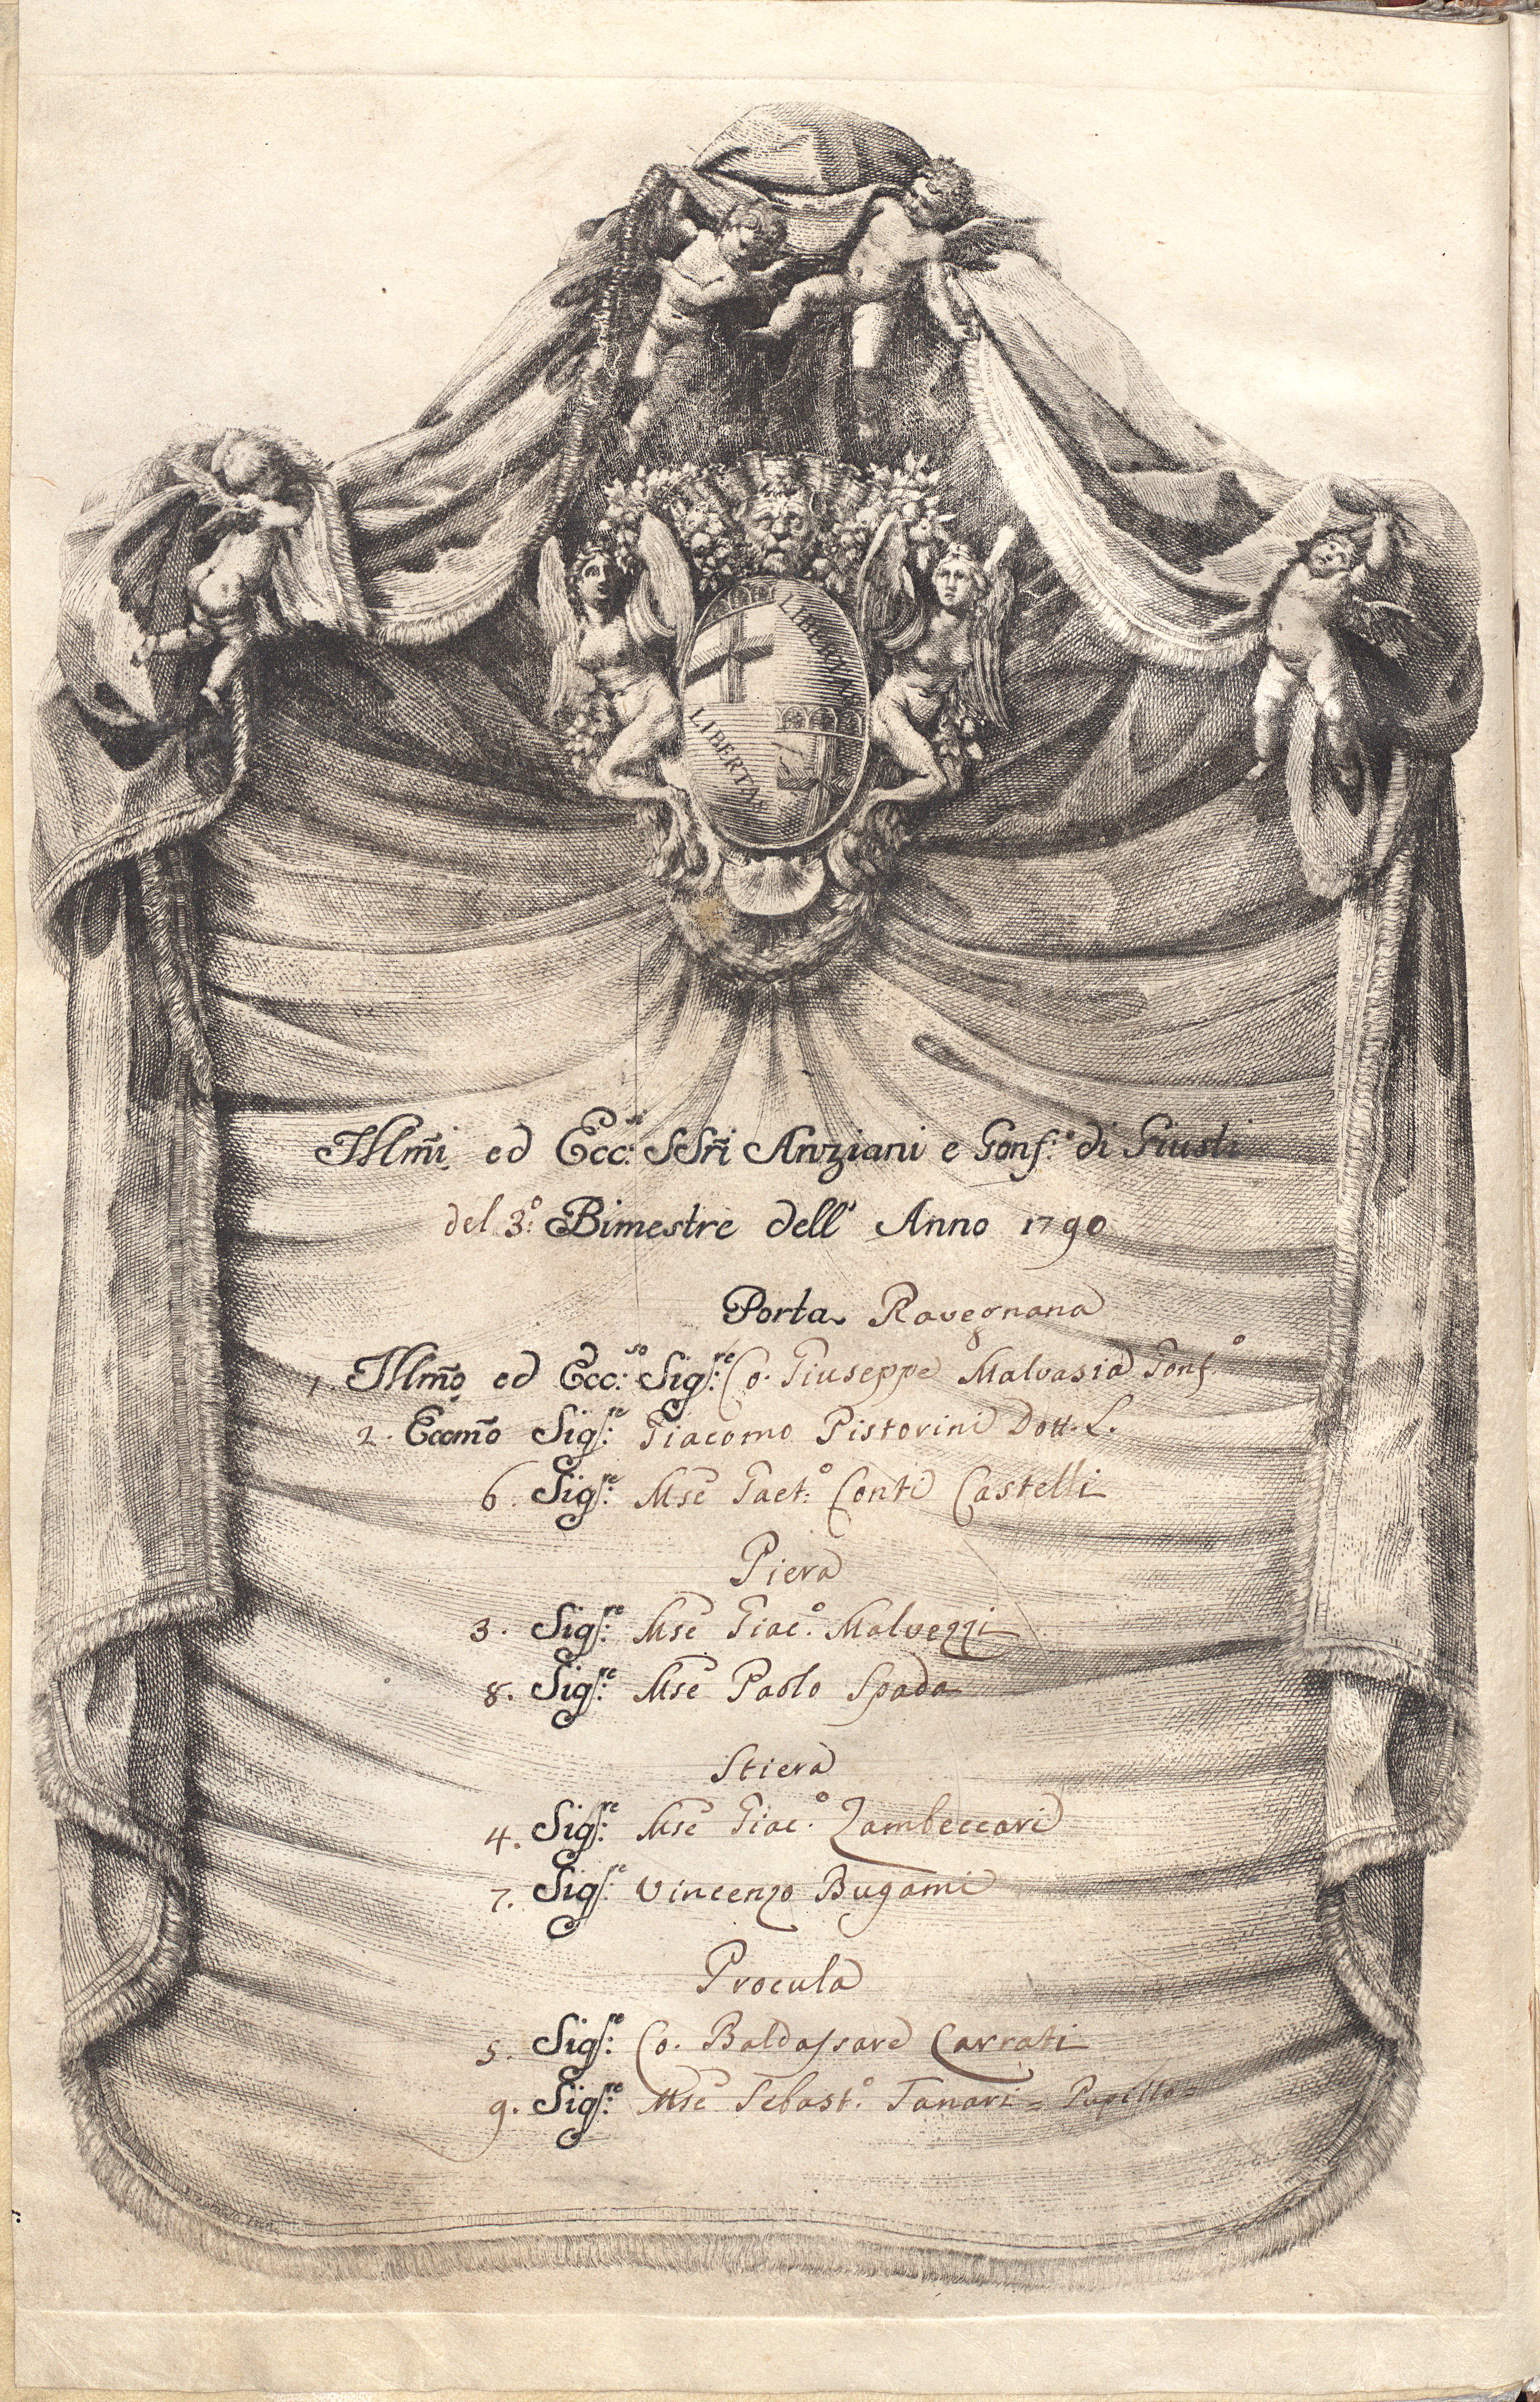 LIBERTAS
LIBERTAS
Illm̃i ed Ecc:mi SSri Anziani e Gonf:e di Giusti
del 3:o Bimestre dell' Anno 1790
Porta Ravegnana
1. Illm̃o ed Ecc:so Sig:re Co. Giuseppe Malvasia Gonf.o
2. Eccm̃o Sig:re Giacomo Pistorini Dott. L.
6. Sig:re Mse Gaet:o Conti Castelli
Piera
3. Sig:re Mse Giac:o Malvezzi
8. Sig:re Mse Paolo Spada
Stiera
4. Sig:re Mse Giac:o Zambeccari
7. Sig:re Vincenzo Bugami
Procula
5. Sig:re Co. Baldassare Carrati
9. Sig:re Mse Sebast:o Tanari = Pupillo =